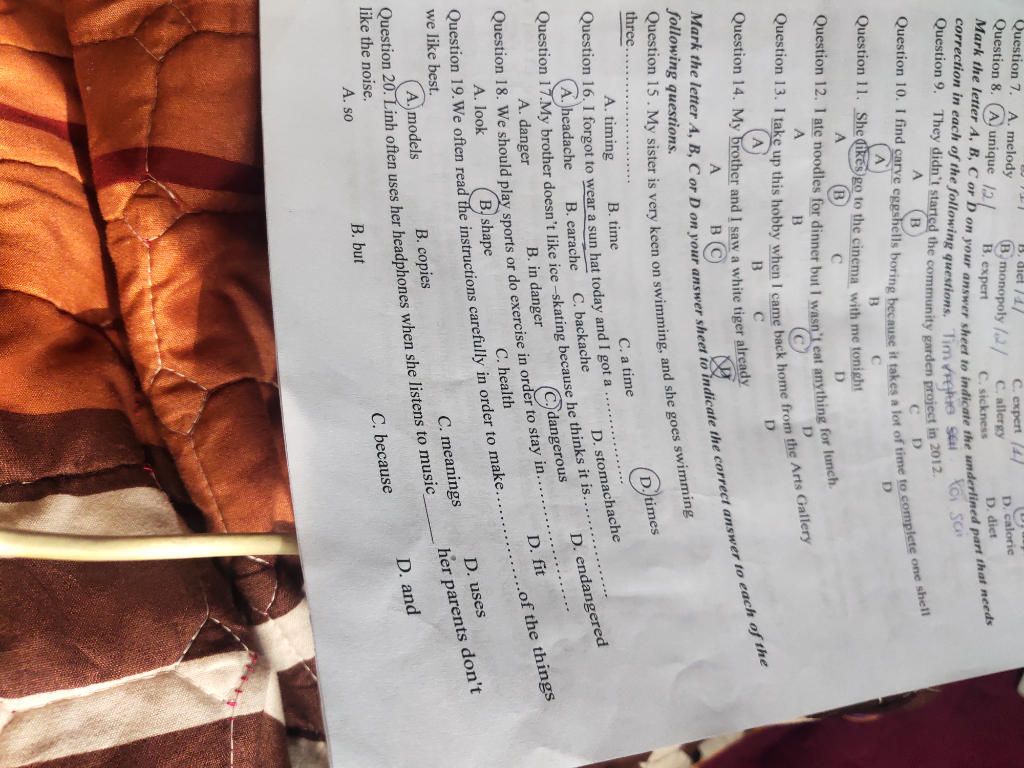 Question 7. A. melody B. diet /1/ C. expert /1/ D. calorie
Question 8. A. unique /2/ B. monopoly /2/ C. allergy D. diet
B. expert C. sickness
Mark the letter A, B, C or D on your answer sheet to indicate the underlined part that needs
correction in each of the following questions. Tìm
Question 9. They didn't started the community garden project in 2012.
A B C D
Question 10. I find carve eggshells boring because it takes a lot of time to complete one shell
A B C D
Question 11. She likes go to the cinema with me tonight
A B C D
Question 12. I ate noodles for dinner but I wasn't eat anything for lunch.
A B C D
Question 13. I take up this hobby when I came back home from the Arts Gallery
A B C D
Question 14. My brother and I saw a white tiger already
A B C D
Mark the letter A, B, C or D on your answer sheet to indicate the correct answer to each of the
following questions.
Question 15 . My sister is very keen on swimming, and she goes swimming
three………………
A. timing B. time C. a time D. times
Question 16. I forgot to wear a sun hat today and I got a ……………
A. headache B. earache C. backache D. stomachache
Question 17.My brother doesn't like ice –skating because he thinks it is………………
A. danger B. in danger C. dangerous D. endangered
Question 18. We should play sports or do exercise in order to stay in………………
A. look B. shape C. health D. fit
Question 19.We often read the instructions carefully in order to make………………of the things
we like best.
A. models B. copies C. meanings D. uses
Question 20. Linh often uses her headphones when she listens to music_____ her parents don't
like the noise.
A. so B. but C. because D. and